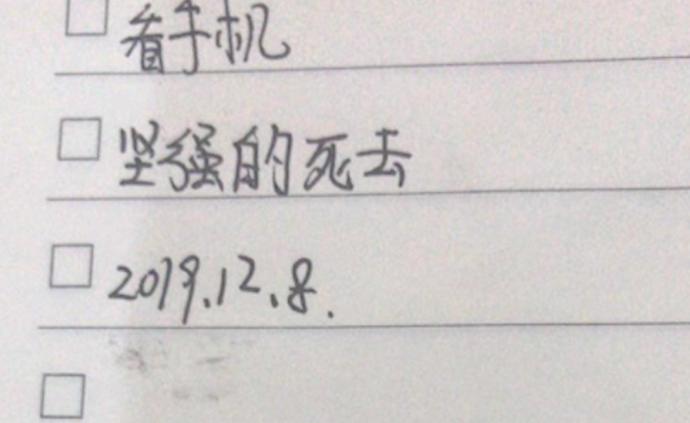 看手机
坚强的死去
2019.12.8.